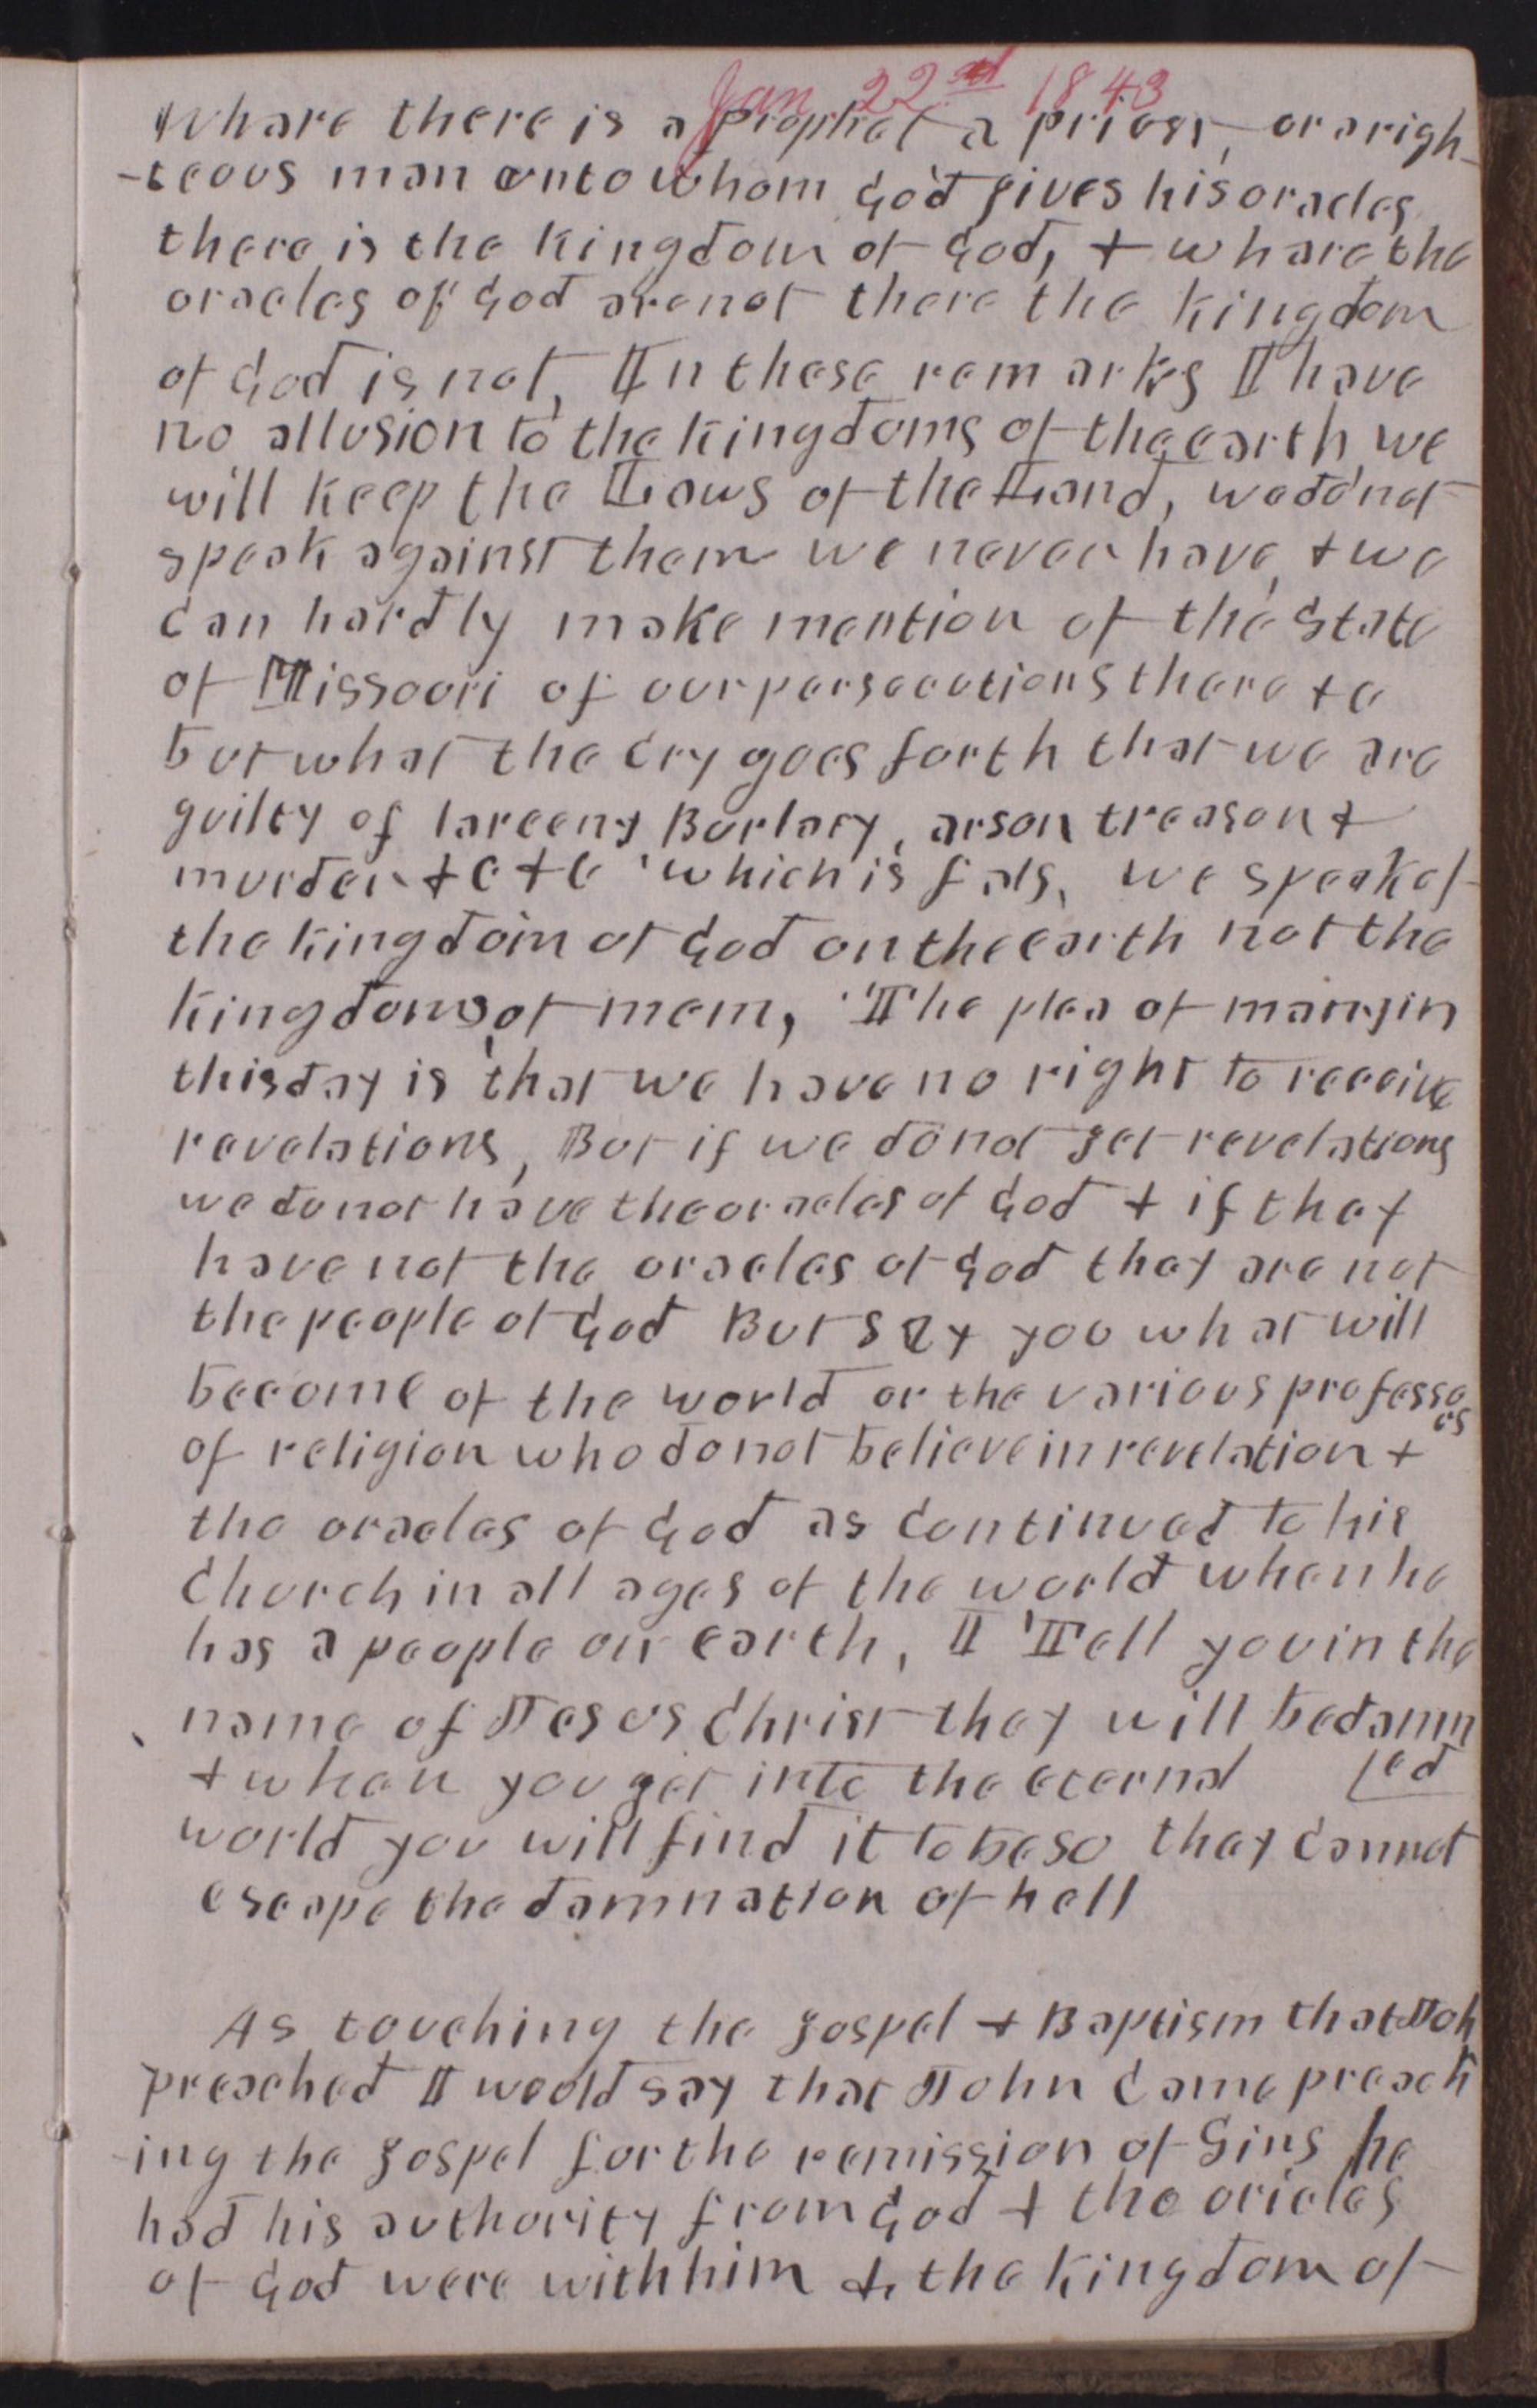 Jan 22nd 1843
Whare there is a prophet a priest, or a righ-
-teous man unto whom God gives his oracles
there is the kingdom of God, & whare the
oracles of God are not there the kingdom
of God is not, In these remarks I have
no allusion to the kingdoms of the earth we
will keep the Laws of the Land, we do not
speak against them we never have, & we
can hardly make mention of the State
of Missouri of our persecutions there &c
but what the cry goes forth that we are
guilty of larceny Burlary, arson treason &
murder &c &c which is fals, we speak of
the kingdom of God on the earth not the
kingdoms of mem, The plea of mam in
this day is that we have no right to receive
revelations, But if we do not get revelations
we do not have the oracles of God & if they
have not the oracles of God they are not
the people of God But say you what will
become of the world or the various professo
es
of religion who do not believe in revelation &
the oracles of God as continued to his
Church in all ages of the world when he
has a people on earth, I Tell you in the
name of Jesus Christ they will be damn
& when you get into the eternal [ed
world you will find it to be so they cannot
escape the damnation of hell
As touching the gospel & Baptism that Joh
preached I would say that John came preach
-ing the gospel for the remission of Sins he
had his authority from God & the oricles
of God were with him & the kingdom of